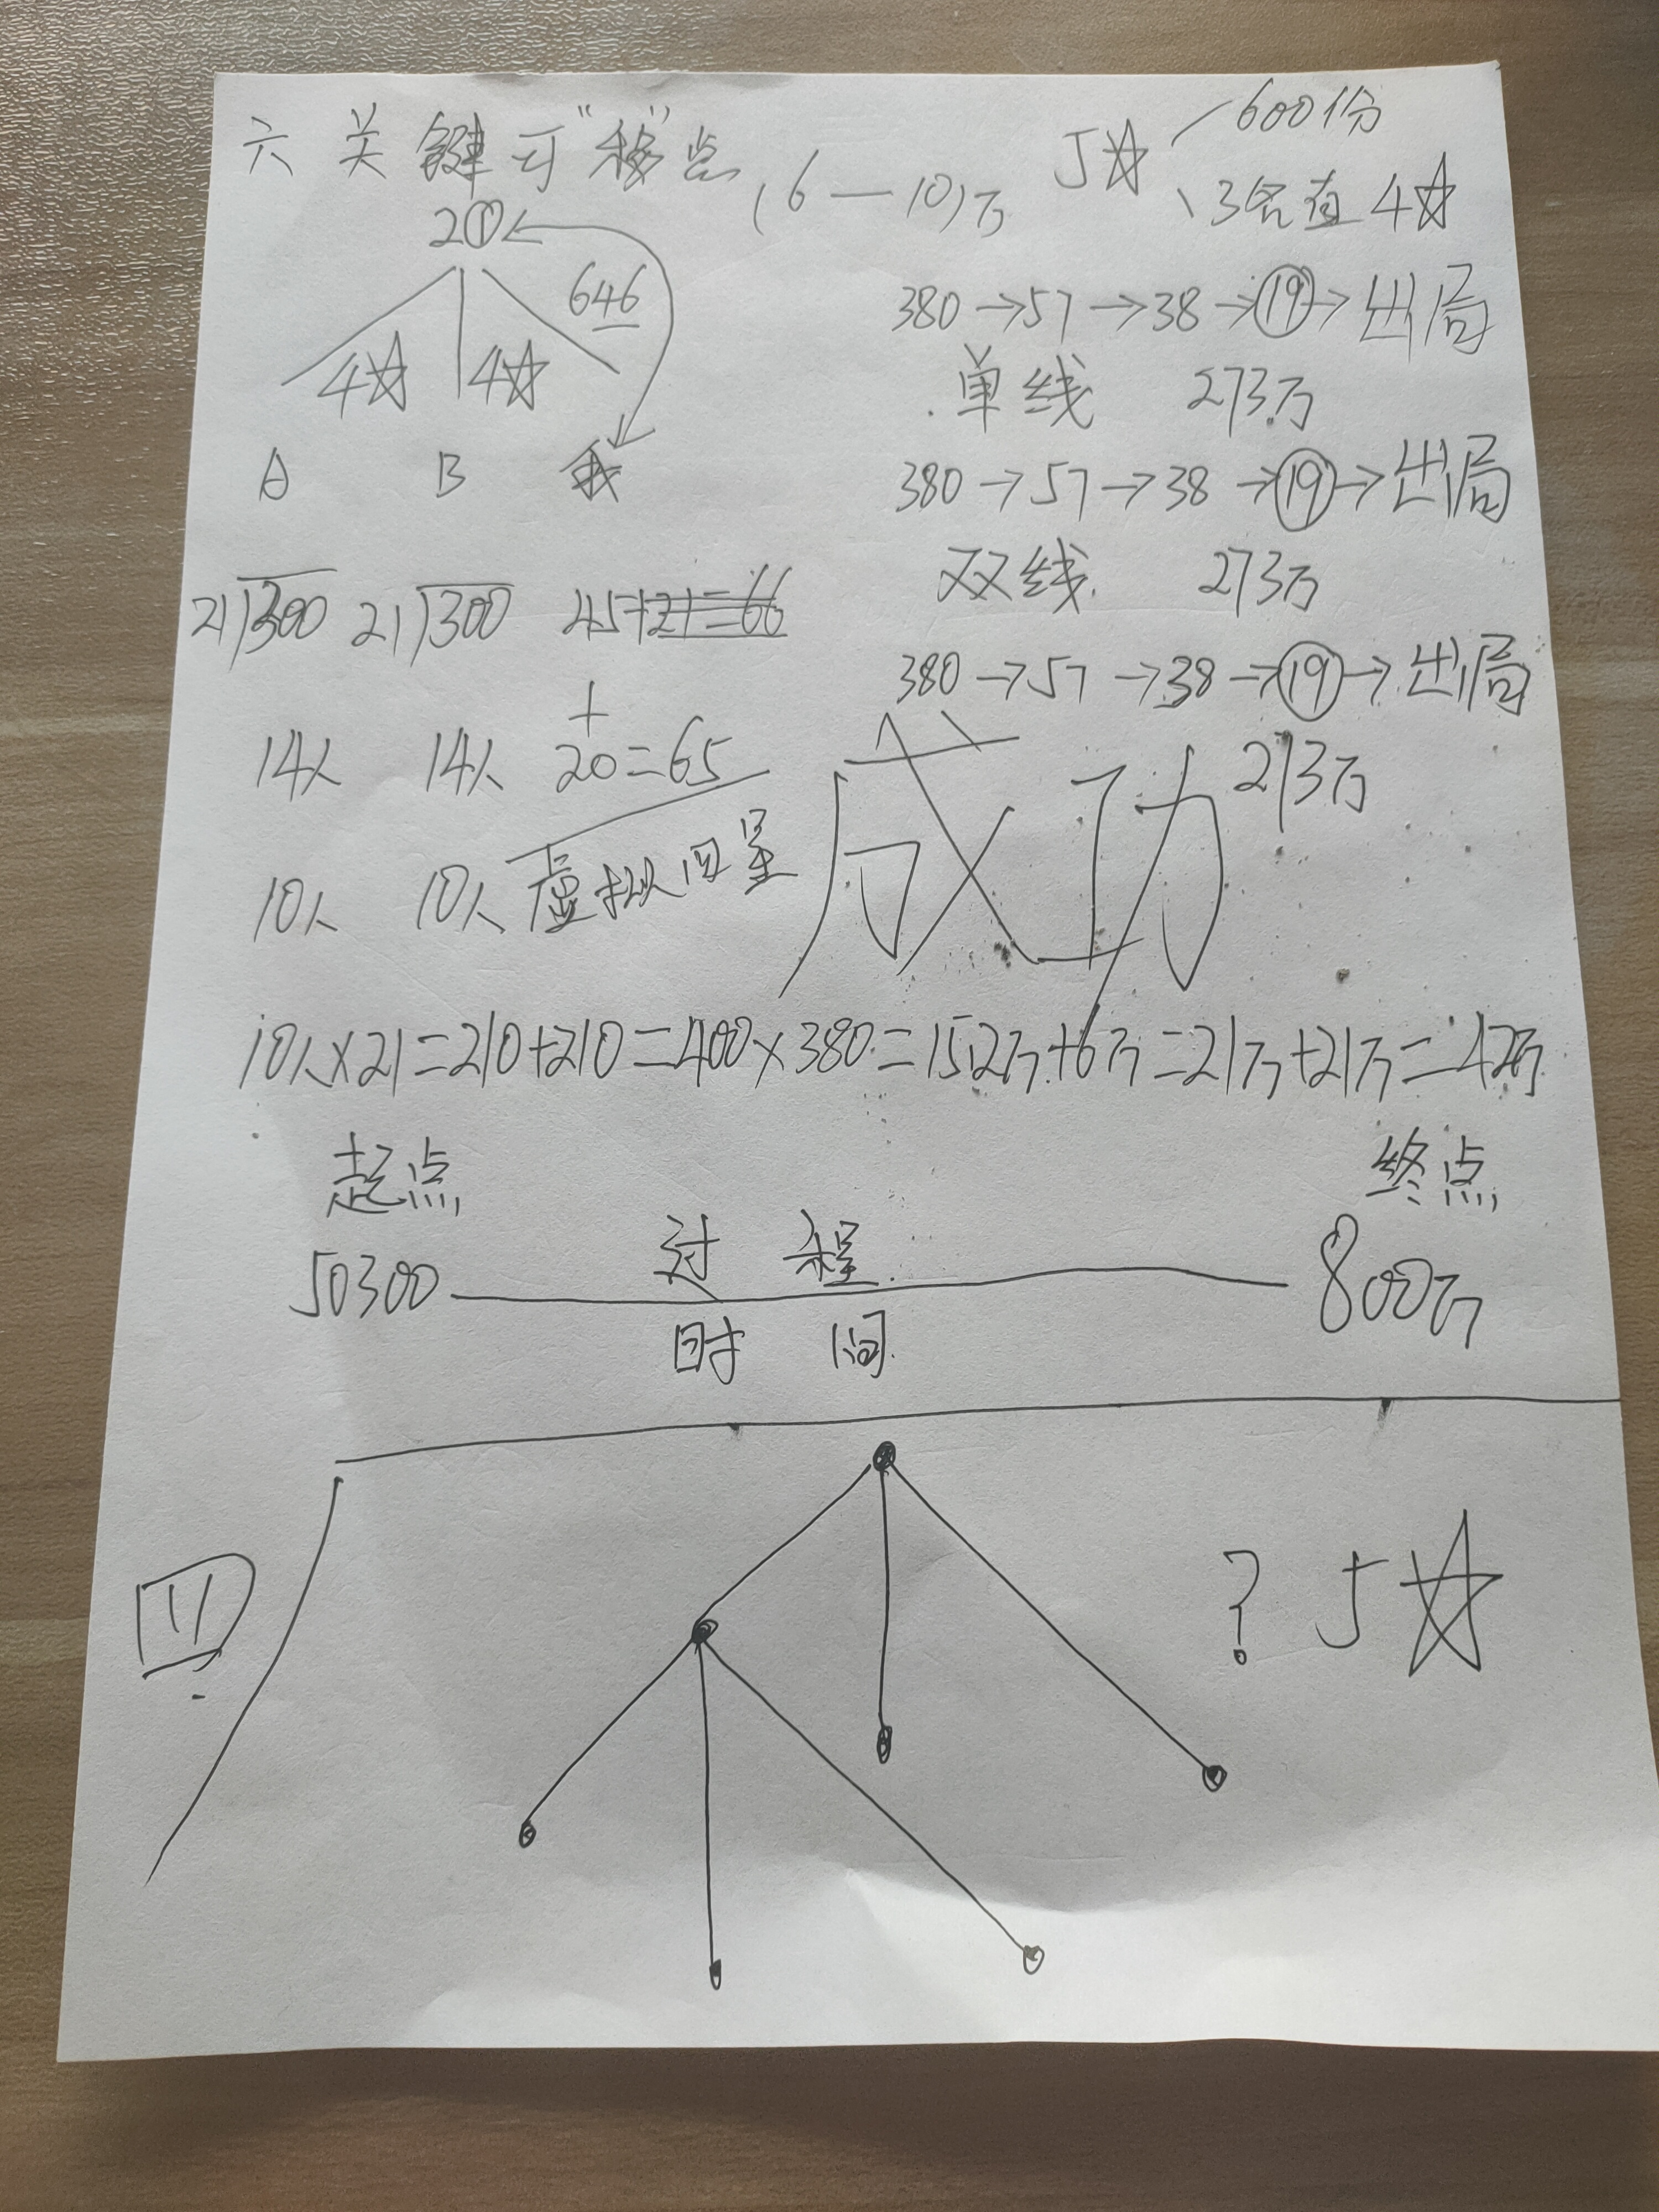 六 关键可"移"点 (6—10)万
5☆ 600份
3条有4☆
20①
646
4☆ 4☆
A B 我
380→57→38→⑲→出局
单线 273万
380→57→38→⑲→出局
双线 273万
380→57→38→⑲→出局
成功 273万
21)300 21)300 45+21=66
14人 14人 +20=65
10人 10人 虚拟四星
10人×21=210+210=400×380=15.2万+6万=21万+21万=42万
起点 终点
50300 过程 800万
时间
? 5☆